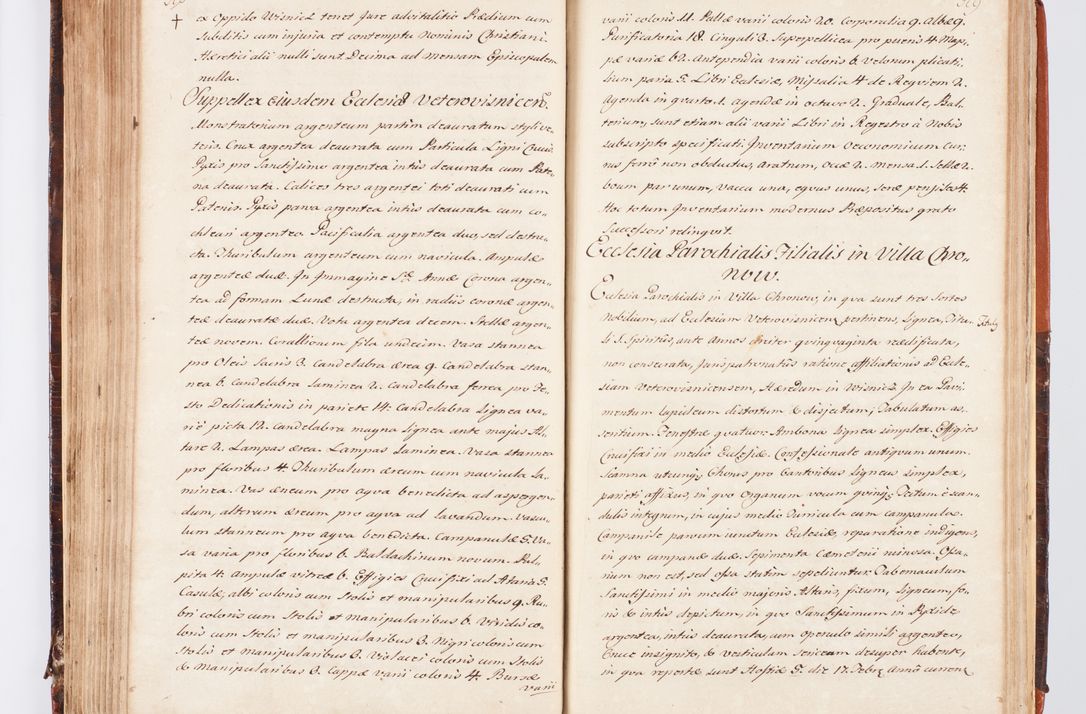 ex Oppido Wisnicz tenet Jure advitalitio Prædium cum
subditis cum injuria et contemptu Nominis Christiani.
Hæretici alii nulli sunt Decima ad Mensam Episcopalem
nulla.
Suppellex ejusdem Ecclesiæ Veterovisnicens.
Monstratorium argenteum partim deauratum styli ve„
teris. Crux argentea deaurata cum Particula Ligni Crucis.
Pyxis pro Sanctissimo argentea intus deaurata cum Pate„
na deaurata. Calices tres argentei toti deaurati cum
Patenis. Pyxis parva argentea intus deaurata cum co„
chleari argenteo. Pacificalia argentea duo, sed destru„
cta. Thuribulum argenteum cum navicula. Ampulæ
argenteæ duæ. In Immagine S. Annæ Corona argen„
tea ad formam Lunæ destructa, in radiis coronæ argen„
teæ deauratæ duæ. Vota argentea decem. Stellæ argen„
teæ novem. Corallionum fila undecim. Vasa stannea
pro Oleis Sacris 3. Candelabra ærea 9. Candelabra stan„
nea 6. Candelabra Laminea 2. Candelabra ferrea pro Fe„
sto Dedicationis in pariete 14. Candelabra Lignea va„
rie picta 12. Candelabra magna Lignea ante majus Al„
tare 2. Lampas ærea. Lampas Laminea. Vasa stannea
pro floribus 4. Thuribulum æreum cum navicula La„
minea. Vas æneum pro aqva benedicta ad aspergen„
dum, alterum æreum pro aqva ad lavandum. Vascu„
lum stanneum pro aqva benedicta. Campanulæ 5. Va„
sa varia pro floribus 6. Baldachinum novum. Pul„
pita 4. Ampulæ vitreæ 6. Effigies Crucifixi ad Altaria 5.
Casulæ, albi coloris cum Stolis et manipularibus 9. Ru„
bri coloris cum Stolis et manipularibus 6. Viridis co„
loris cum Stolis et manipularibus 3. Nigri coloris cum
Stolis et manipularibus 3. Violacei coloris cum Stolis
& Manipularibus 3. Cappæ varii coloris 4. Bursæ
varii
varii coloris 11. Pallæ varii coloris 20. Corporalia 9. Albæ 9.
Purificatoria 18. Cinguli 3. Superpellicea pro pueris 4. Map„
pæ variæ 62. Antependia varii coloris 6. Velorum plicati„
lium paria 5. Libri Ecclesiæ, Missalia 4. de Reqviem 2.
Agenda in qvarto 1. agendæ in octavo 2. Graduale, Psal„
terium, sunt etiam alii varii Libri in Regestro à Nobis
subscripto specificati. Inventarium Oeconomicum Cur„
rus ferrô non obductus, Aratrum, Occæ 2. Mensa 1. Sellæ 2.
boum par unum, vacca una, eqvus unus, Scrofæ 4.
Hoc totum Inventarium modernus Præpositus grato
Successori relinqvit.
Ecclesia Parochialis Filialis in Villa Chro„
now.
Ecclesia Parochialis in Villa Chronow, in qva sunt tres Sortes
Nobilium, ad Ecclesiam Veterovisnicen: pertinens, Lignea, Titu„
li S. Spiritus, ante Annos circiter qvinqvaginta reædificata,
non consecrata, Jurispatronatûs ratione affiliationis ad Eccle„
siam Veterovisnicensem, Hæredum in Wisnicz. In ea Pavi„
mentum lapideum distortum & disjectum; Tabulatum as„
sentium. Fenestræ qvatuor. Ambona Lignea simplex. Effigies
Crucifixi in medio Ecclesiæ. Confessionale antiqvum unum.
Scamna utrinq; Chorus pro Cantoribus Ligneus simplex,
parieti affixus, in qvo Organum vocum qvinq; Tectum è scan„
dulis integrum, in cujus medio Turricula cum campanula.
Campanile parvum unitum Ecclesiæ, reparatione indigens,
in qvo campanæ duæ. Sepimenta Cæmeterii ruinosa. Ossa„
rium non est, sed ossa statim sepeliuntur. Tabernaculum
Sanctissimi in medio majoris Altaris, fixum, Ligneum, fo„
ris & intus depictum, in qvo Sanctissimum in Pyxide
argentea, intus deaurata, cum operculo simili argenteo,
Cruce insignito, & vestimentum sericeum desuper habente,
in qva repertæ sunt Hostiæ 5. die 17. Febr: annô curren: